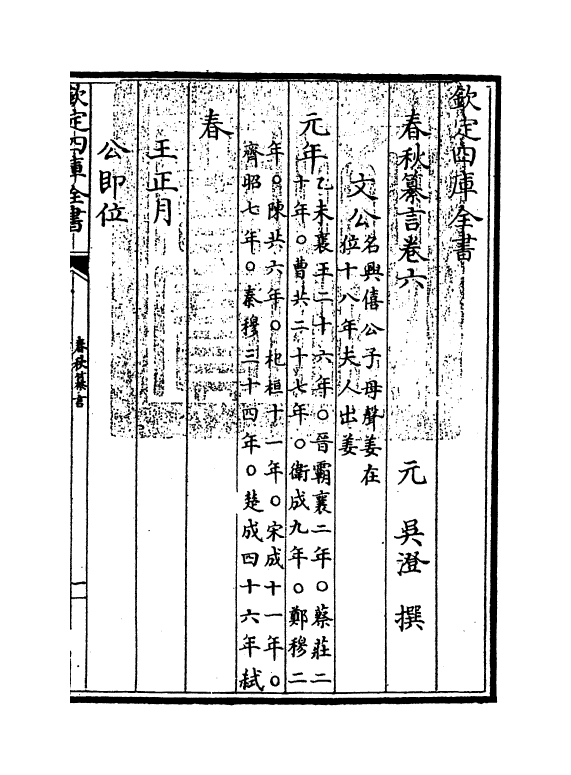 欽定四庫全書
春秋纂言卷六
元　吳澄　撰
文公
名興僖公子母聲姜在
位十八年夫人出姜
元年
乙未襄王二十六年○晉霸襄二年○蔡莊二
十年○曹共二十七年○衛成九年○鄭穆二
年○陳共六年○杞桓十一年○宋成十一年○
齊昭七年○秦穆三十四年○楚成四十六年弑
春
王正月
公即位
欽定四庫全書
春秋纂言
一